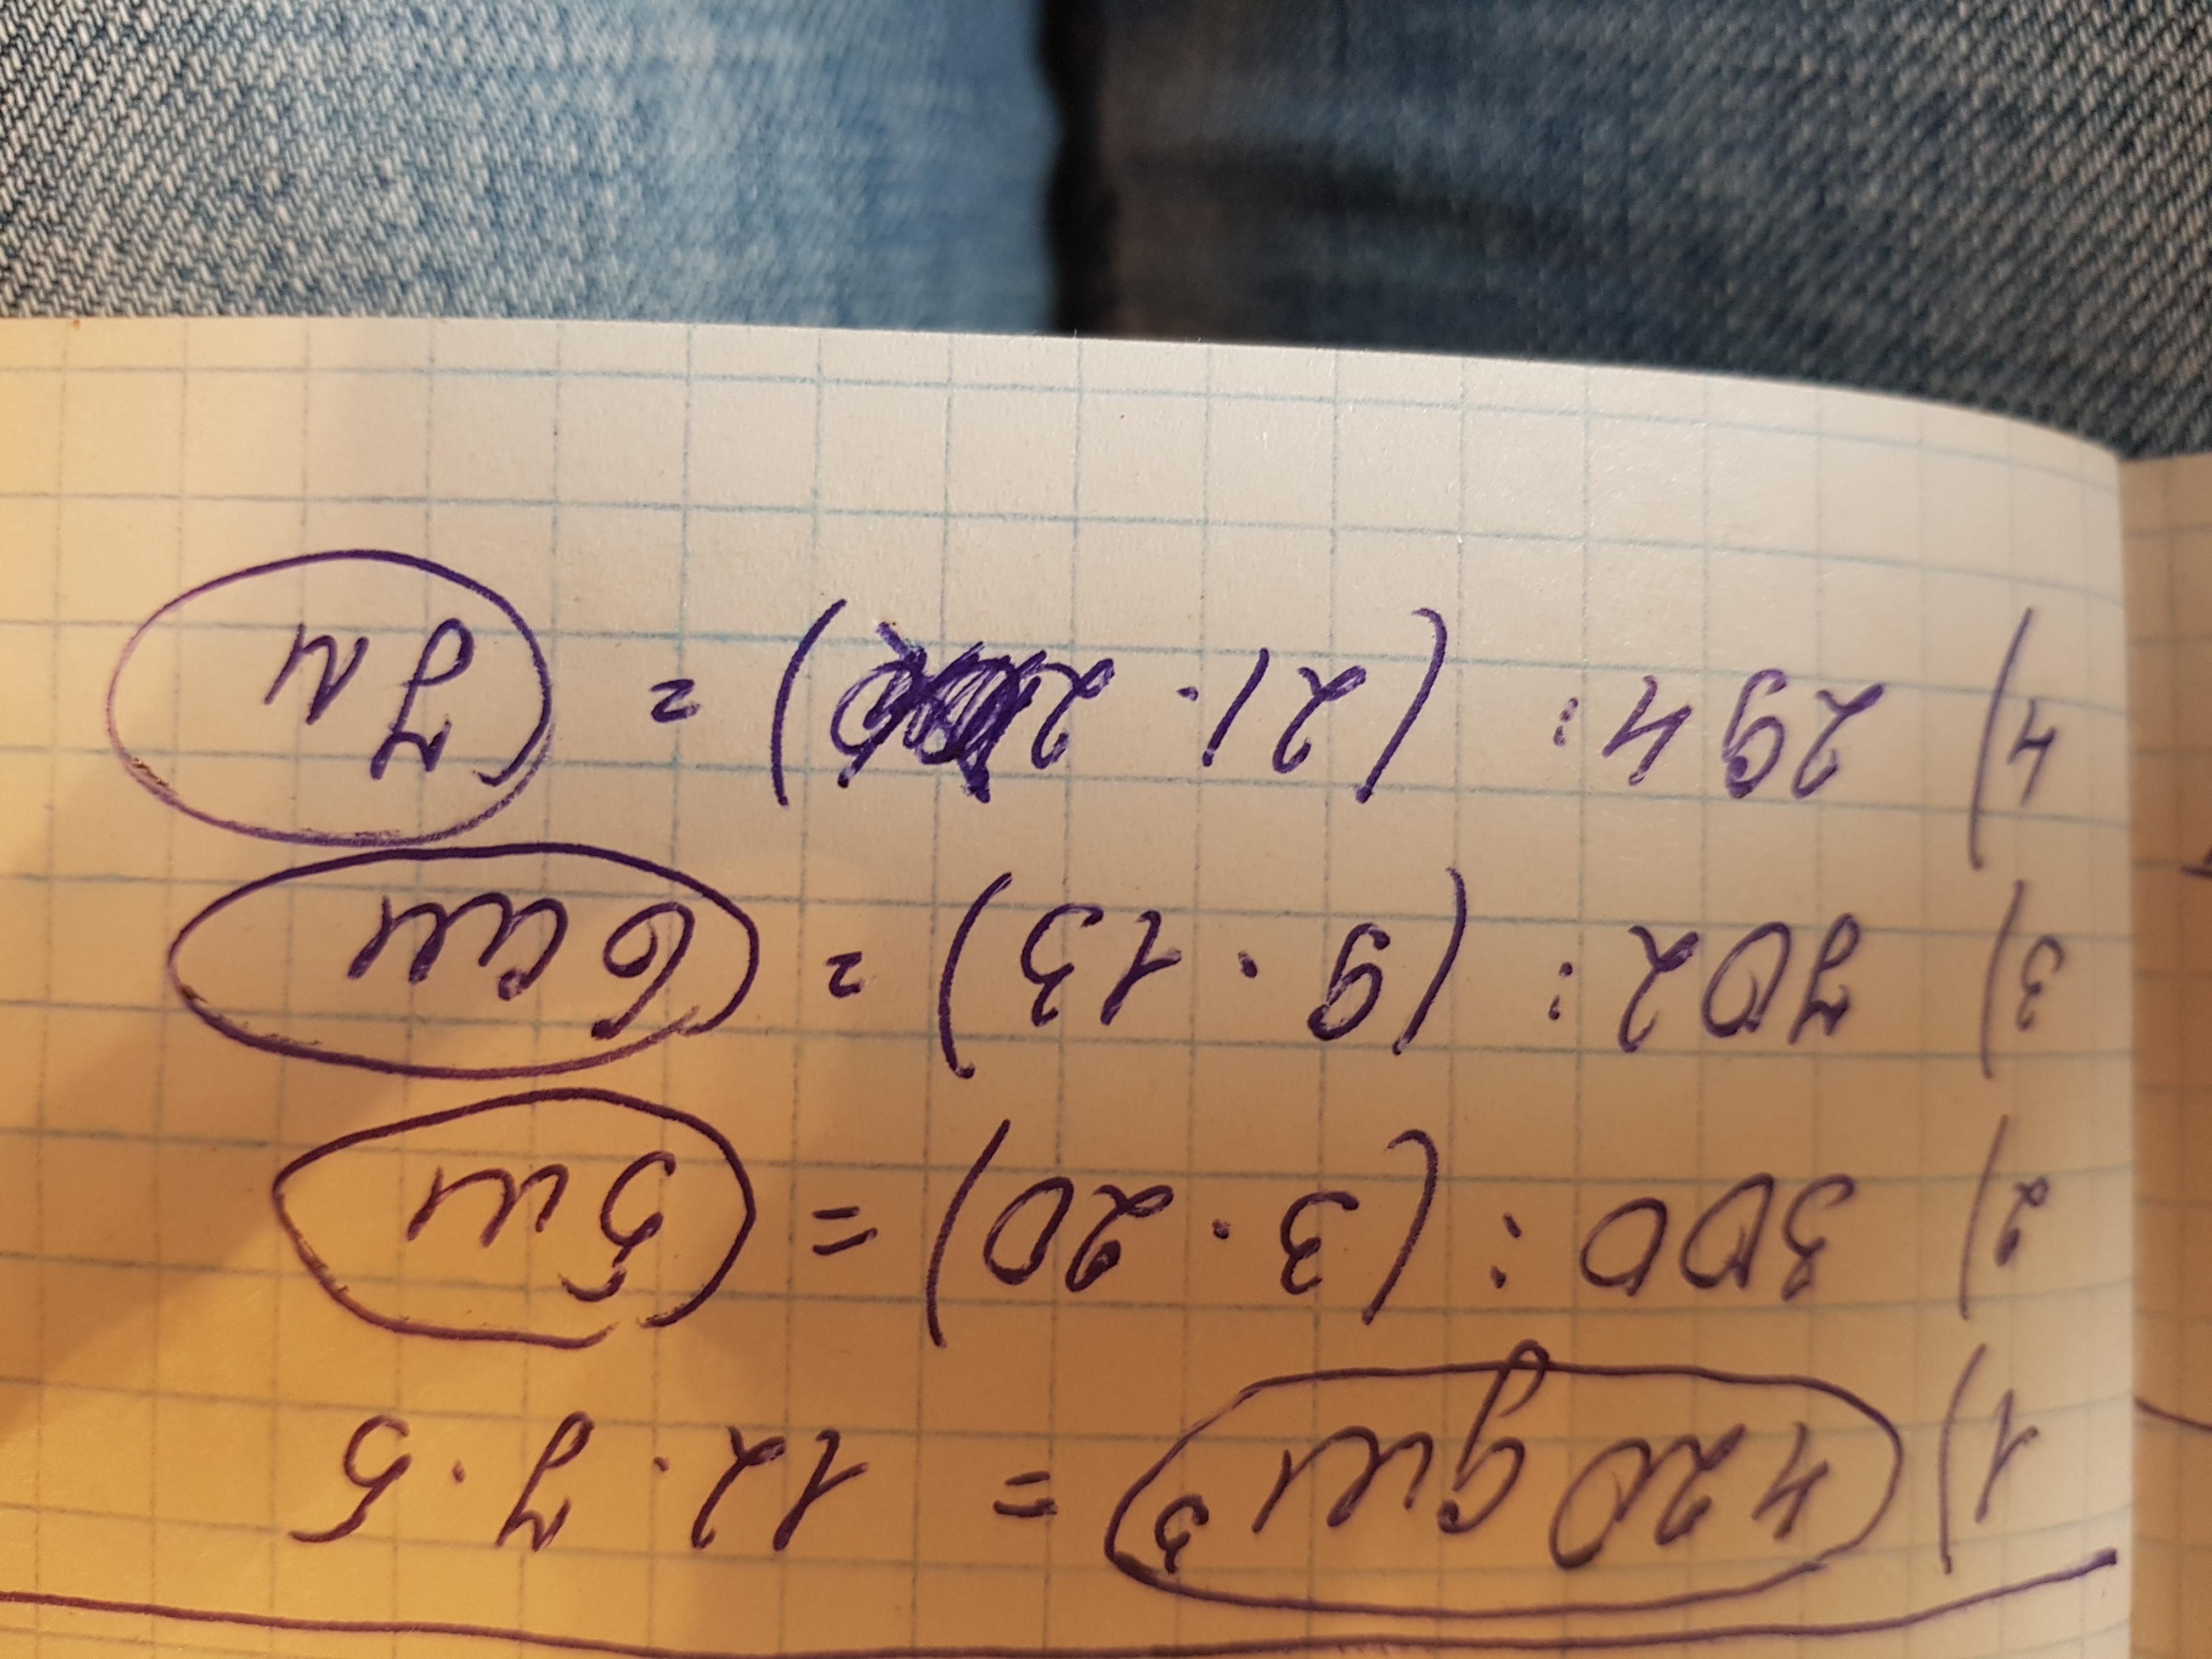 1) 420 дм³ = 12 · 7 · 5
2) 300 : (3 · 20) = 5 м
3) 702 : (9 · 13) = 6 см
4) 294 : (21 · 2) = 7 м